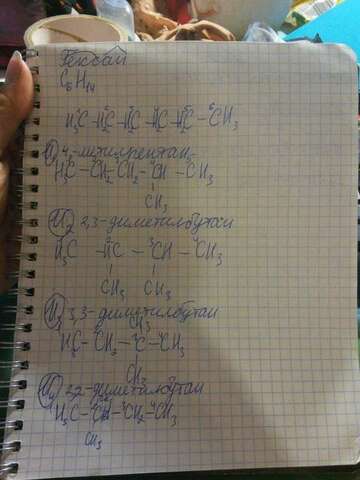 Гексан
C6H14
H3C - H2C - H2C - H2C - H2C - CH3
И1 4-метилпентан
H3C - CH2 - CH2 - CH - CH3
CH3
И2 2,3-диметилбутан
H3C - HC - CH - CH3
CH3 CH3
И3 3,3-диметилбутан
CH3
H3C - CH2 - C - CH3
CH3
И4 2,2-диметилбутан
H3C - CH - CH2 - CH3
CH3